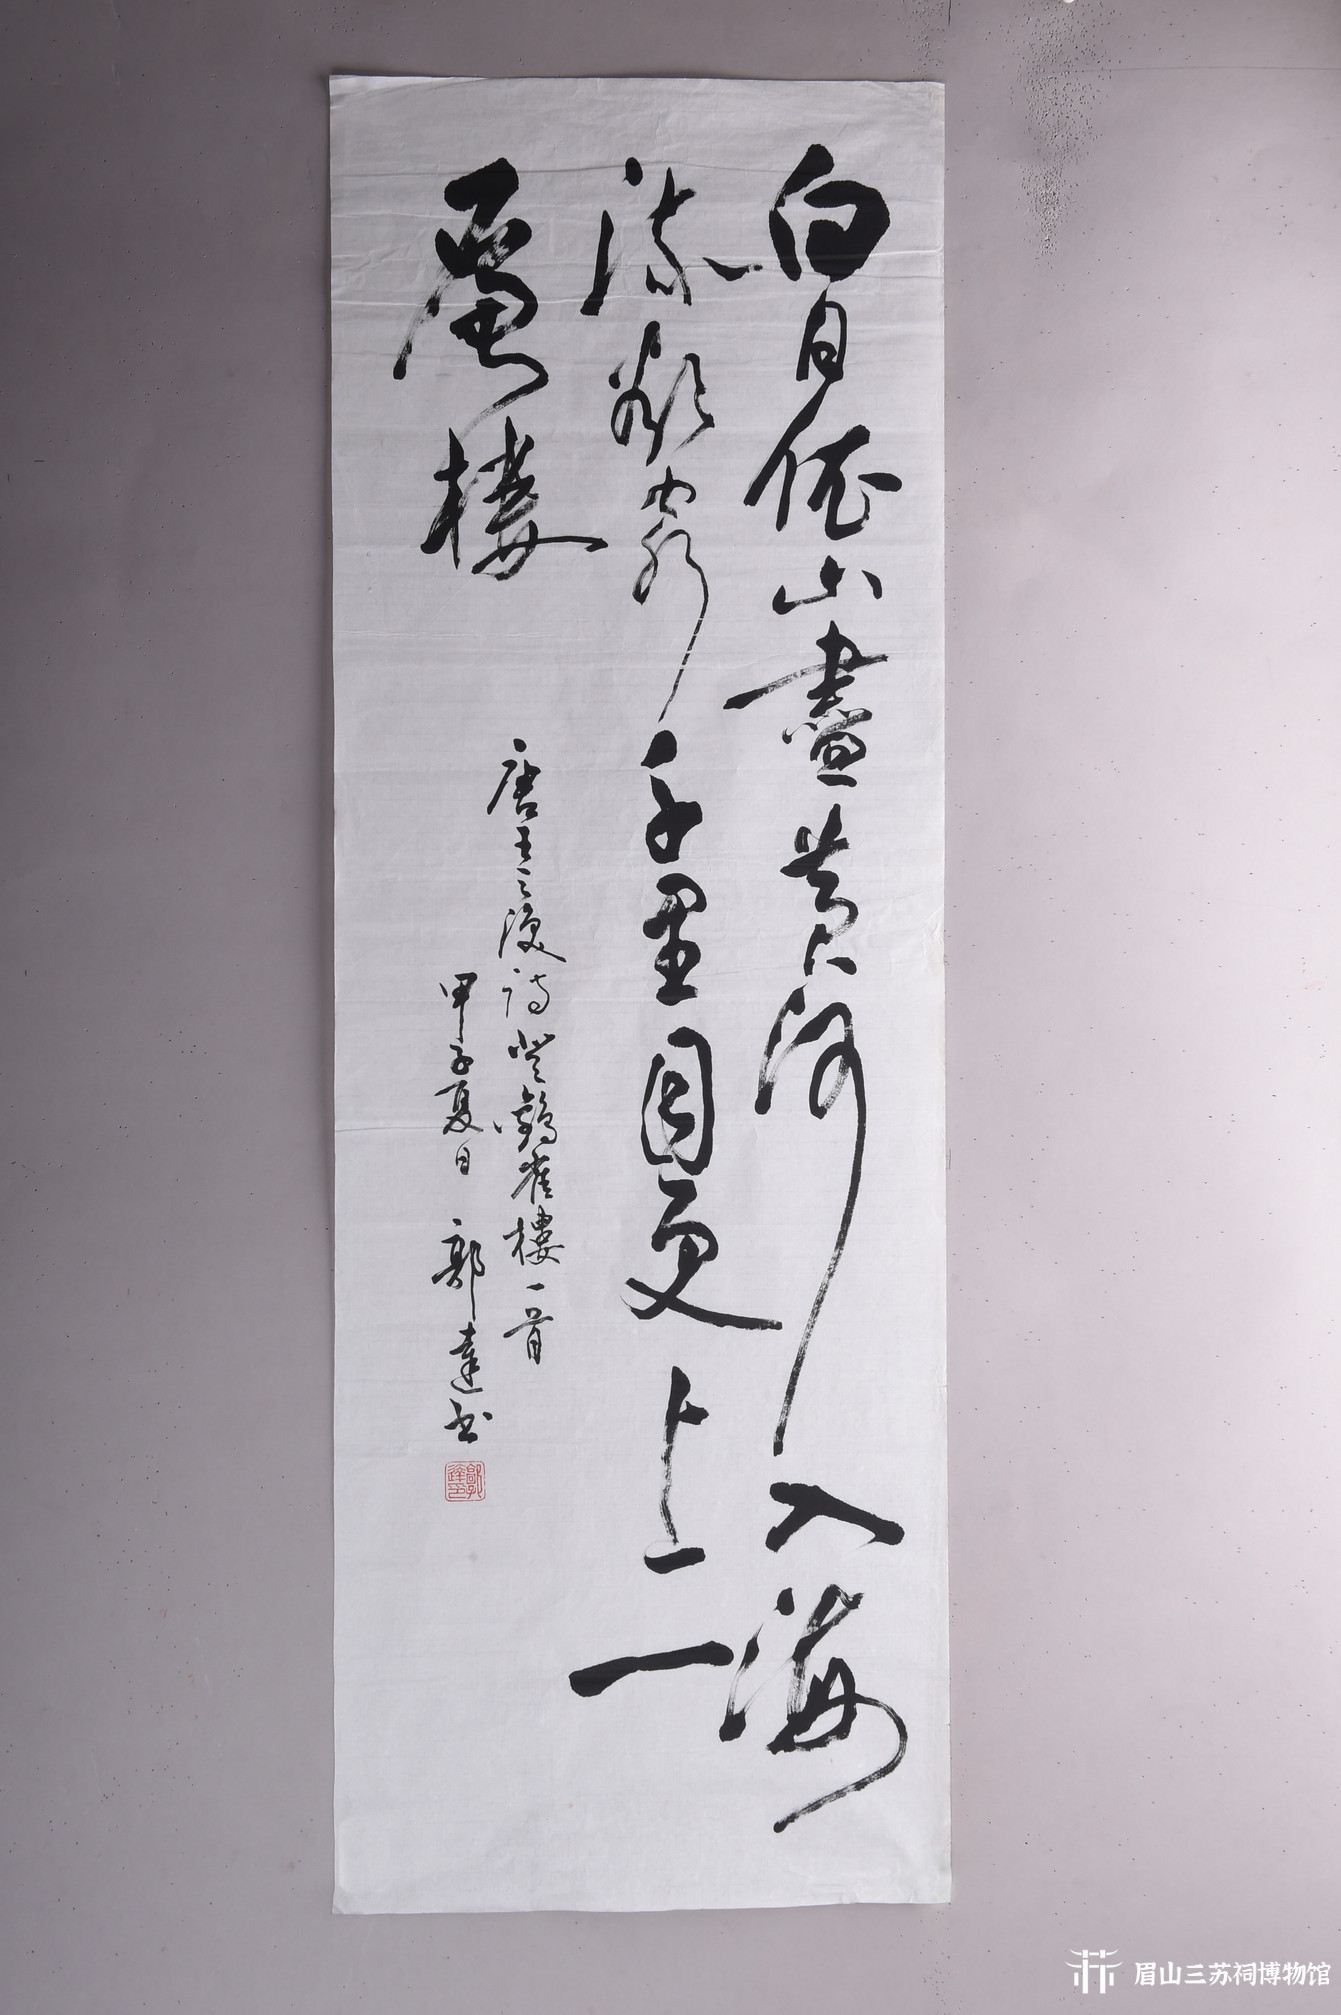 白日依山盡黄河入海
流欲窮千里目更上一
層樓
唐王之渙詩登鸛雀樓一首
甲子夏日 郭達书
眉山三苏祠博物馆